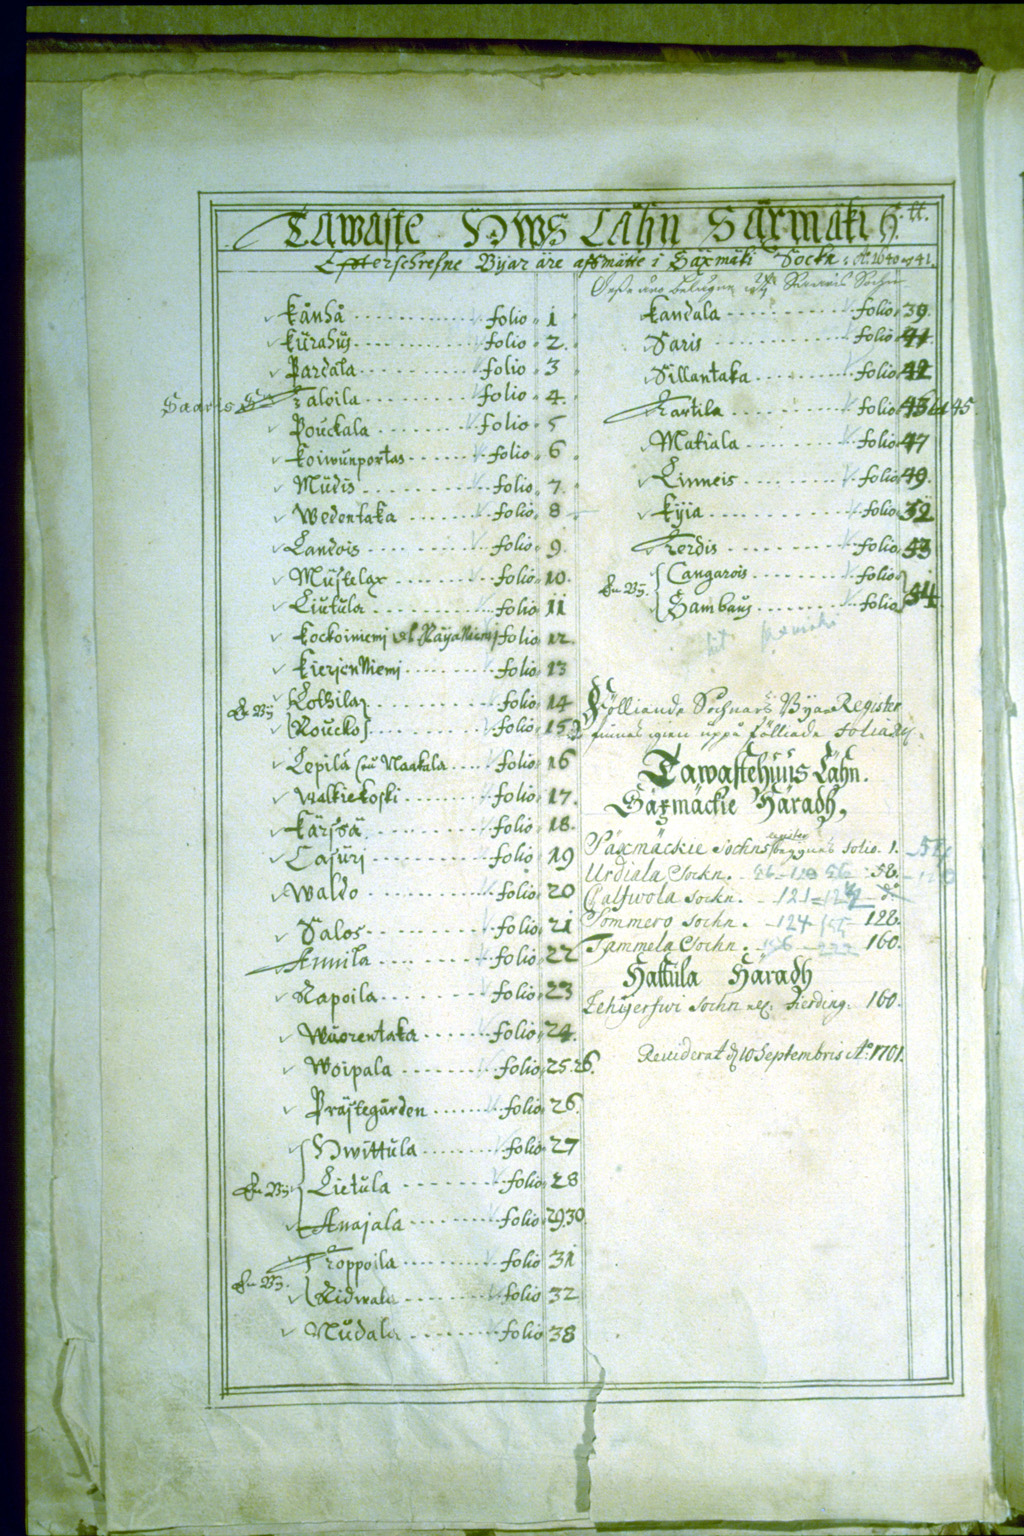 Tawaste Hws Lähn Säxmäki H:tt.
Effterschrefne Byiar äre affmätte i Säxmäki Sockn: A: 1640 och 41.
Kånhå folio 1
Kürahüs folio 2.
Pardala folio 3
Saaris Sn Taloila folio 4.
Pouckala folio 5
Koiwunportas folio 6
Müdis folio 7.
Wedentaka folio 8
Landois folio 9.
Müstelax folio 10.
Liutula folio 11
Kockoiniemj el Räyäniemj folio 12
Kierjenniemj folio 13
En By Lothila folio 14
Roucko folio 15
Lepilä seu Naakala folio 16
Walkiekoski folio 17.
Kärssä folio 18.
Casurj folio 19
Waldo folio 20
Salos folio 21
Annila folio 22
Rapoila folio 23
Wuorentaka folio 24.
Woipala folio 25. 26.
Prästegården folio 26.
Hwittula folio 27
En By Lietula folio 28
Anajala folio 29.30
Troppoila folio 31
En By. Ridwala folio 32
Nudala folio 38
Saaris Sochn
Kandala folio 39.
Saris folio 41
Sillantaka folio 42
Tartila folio 43 44 45
Matiala folio 47
Linneis folio 49.
Kyia folio 52
Terdis folio 53
En By. Cangarois folio 54
Sambaus folio
Fölliande Sochnars Byar Register
finnas igien uppå följiade foliader.
Tawastehuus Lähn.
Säxmäckie Häradh,
Päxmäckie Sochns folio. 1.
Urdiala Sockn. 58.
Calfwola sockn. 121
Sommero sochn. 124 128.
Tammela Sochn. 160.
Hattula Häradh
Lehijerfwi sochn fierding: 160.
Reuiderat d 10 Septembris A:o 1701.